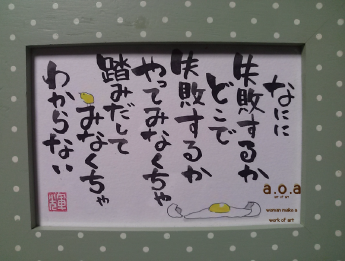 なにに
失敗するか
どこで
失敗するか
やってみなくちゃ
踏みだして
みなくちゃ
わからない
a.o.a
art of art
woman make a
work of art